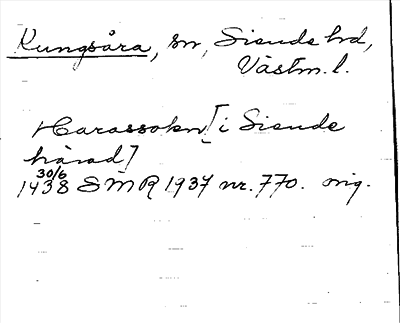 Kungsåra, sn, Siende hd,
Västm. l.
Harassokn [i Siende
härad]
30/6
1438 SMR 1937 nr. 770. orig.